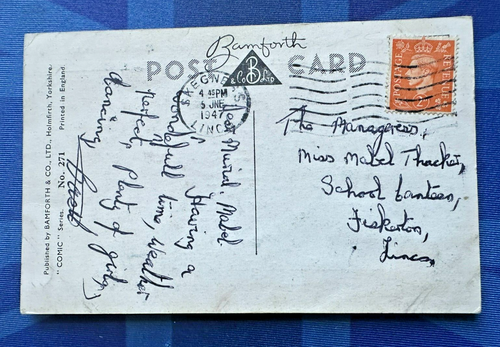 Bamforth
POST CARD
B
& Co LTD
SKEGNESS
4 45PM
5 JNE
1947
LINCS
POSTAGE
REVENUE
Published by BAMFORTH & CO., LTD., Holmfirth, Yorkshire.
"COMIC" Series. No. 271 Printed in England.
Dear Mabel
Having a
wonderfull time, weather
perfect, Plenty of girls,
dancing
The Manageress,
Miss Mabel Thacker,
School Canteen,
Fiskerton,
Lincs.